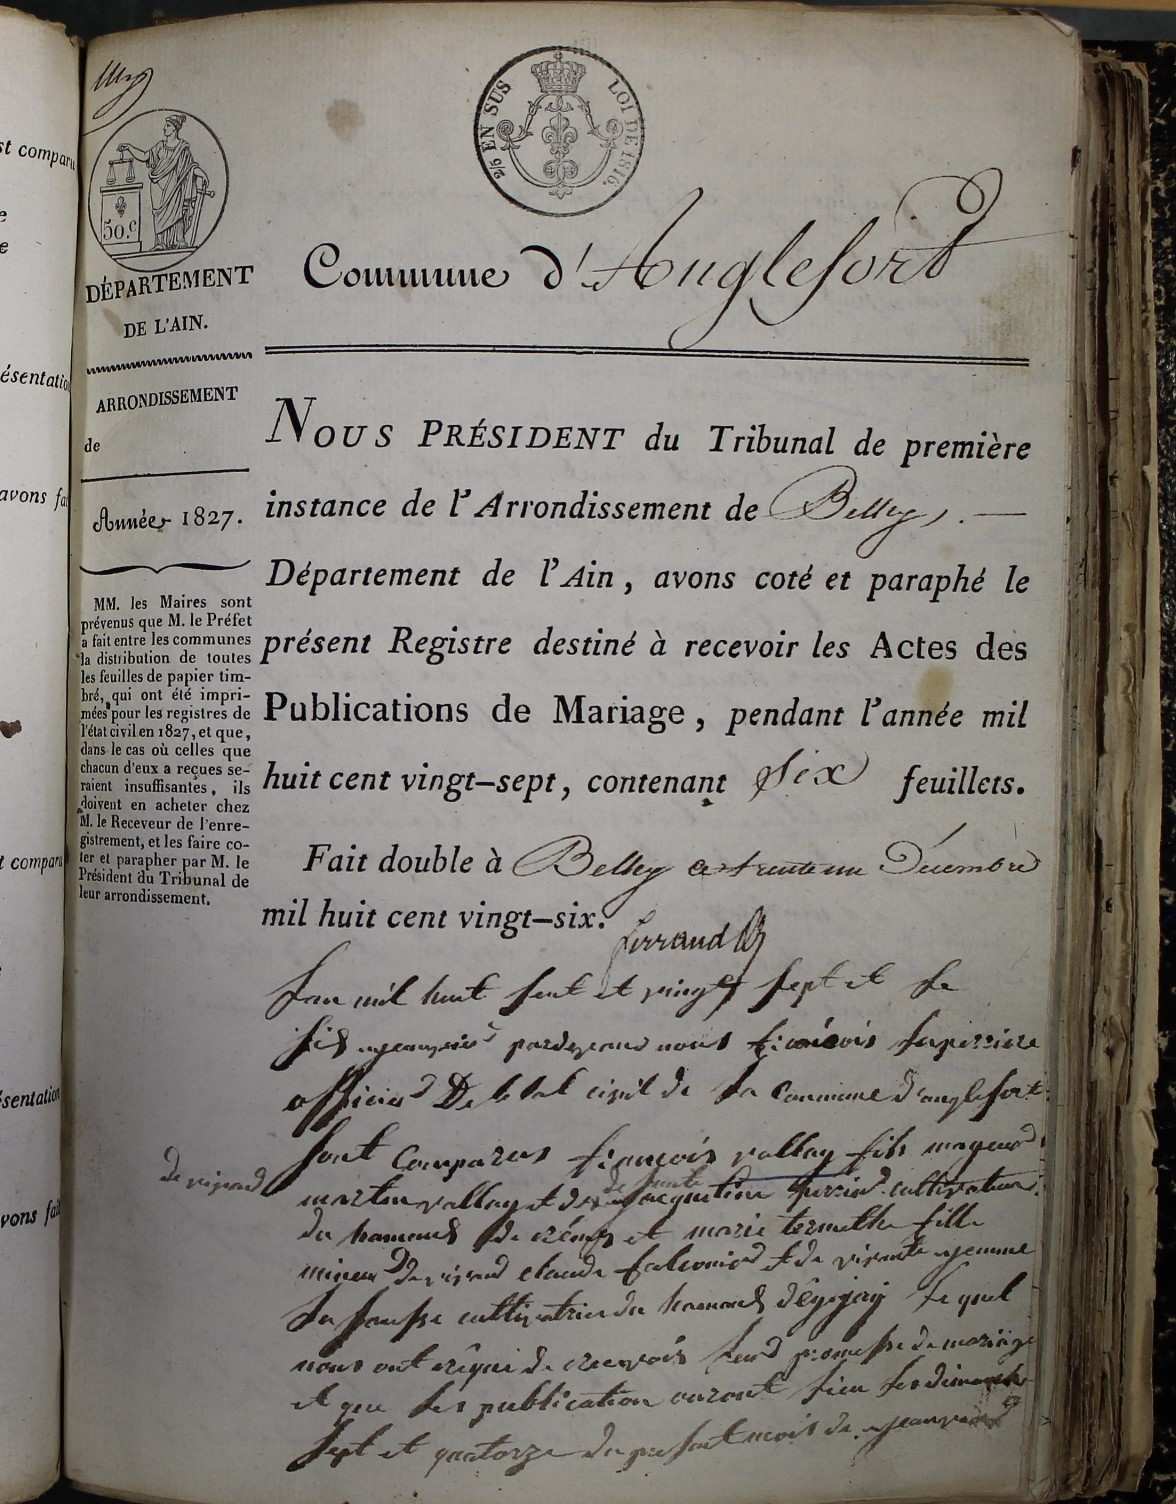 2/6 EN SUS
LOI DE 1816.
50.c
DÉPARTEMENT
DE L'AIN.
ARRONDISSEMENT
de
Année 1827.
MM. les Maires sont
prévenus que M. le Préfet
a fait entre les communes
la distribution de toutes
les feuilles de papier tim-
bré, qui ont été impri-
mées pour les registres de
l'état civil en 1827, et que,
dans le cas où celles que
chacun d'eux a reçues se-
raient insuffisantes, ils
doivent en acheter chez
M. le Receveur de l'enre-
gistrement, et les faire co-
ter et parapher par M. le
Président du Tribunal de
leur arrondissement.
Commune d'Anglefort
NOUS PRÉSIDENT du Tribunal de première
instance de l'Arrondissement de Belley
Département de l'Ain, avons coté et paraphé le
présent Registre destiné à recevoir les Actes des
Publications de Mariage, pendant l'année mil
huit cent vingt-sept, contenant six feuillets.
Fait double à Belley ce trente un Décembre
mil huit cent vingt-six.
Ferrand
Lan mil huit sent et vingt sept et le
six pardevant nous françois
officier De letat civil de la Commune d'anglefort
sont Comparus françois vallay fils mageur
de vivand
martin vallay et de jacqueline cultivateur
du hameau de et marie fille
mineur de vivand claude falconier et de vivante
cultivatrice du hameau lequel
nous ont de recevoir leur promesse de mariage
et que les publication auront lieu les dimanche
sept et quatorze du present mois de